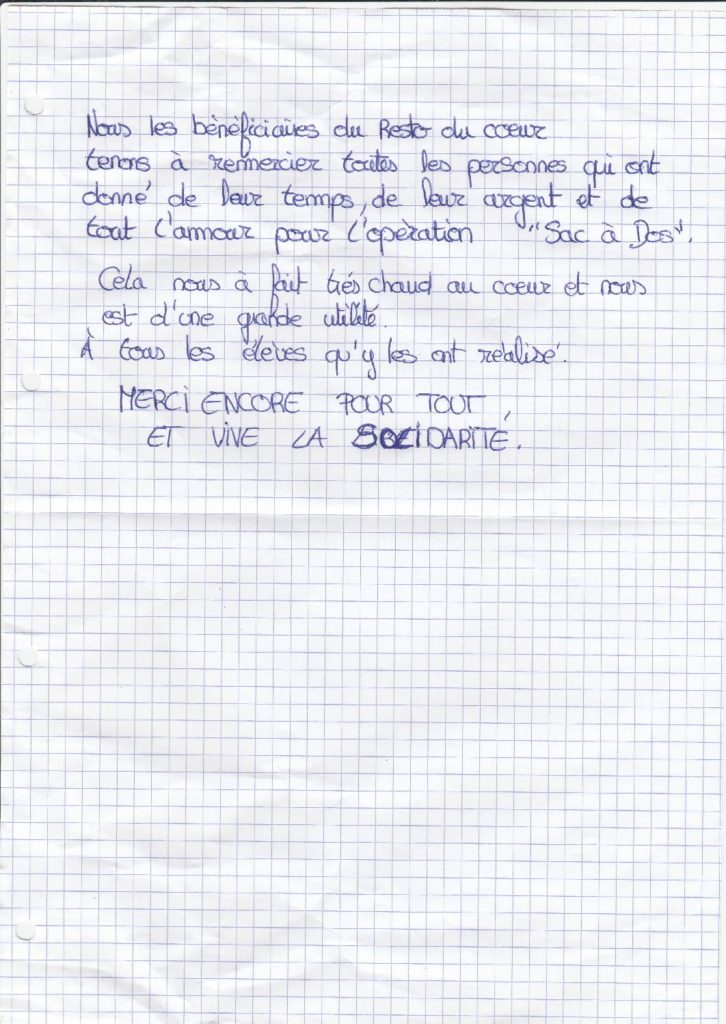 Nous les bénéficiaires du Resto du coeur
tenons à remercier toutes les personnes qui ont
donné de leur temps, de leur argent et de
tout l'amour pour l'opération "Sac à Dos".
Cela nous à fait trés chaud au coeur et nous
est d'une grande utilité.
À tous les élèves qu'y les ont réalisé.
MERCI ENCORE POUR TOUT,
ET VIVE LA SOLIDARITÉ.